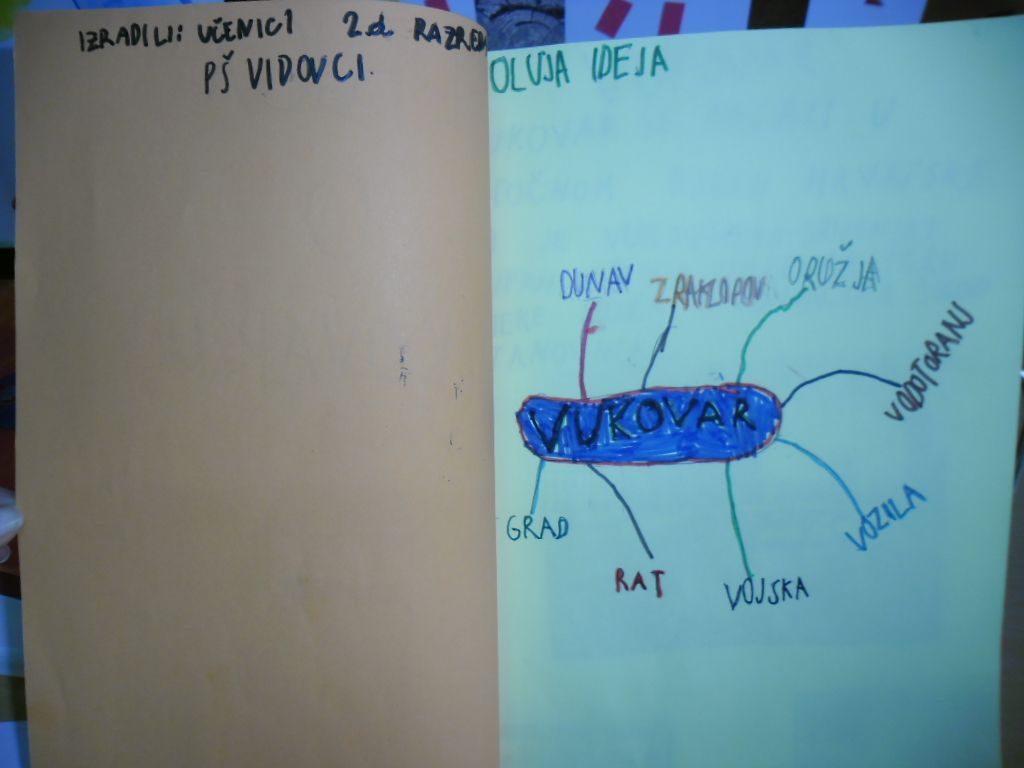 IZRADILI: UČENICI 2.d RAZRED
PŠ VIDOVCI.
OLUJA IDEJA
DUNAV
ZRAKLOPOV
ORUŽJA
VODOTORANJ
VUKOVAR
VOZILA
GRAD
RAT
VOJSKA